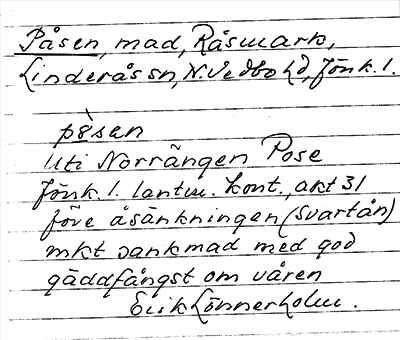 Påsen, mad, Råsmark,
Linderås sn, N. Vedbo hd, Jönk. l.
pòsen
Uti Norrängen Pose
Jönk. l. lantm. kont., akt 31
före åsänkningen (Svartån)
mkt sankmad med god
gäddfångst om våren
Erik Lönnerholm.